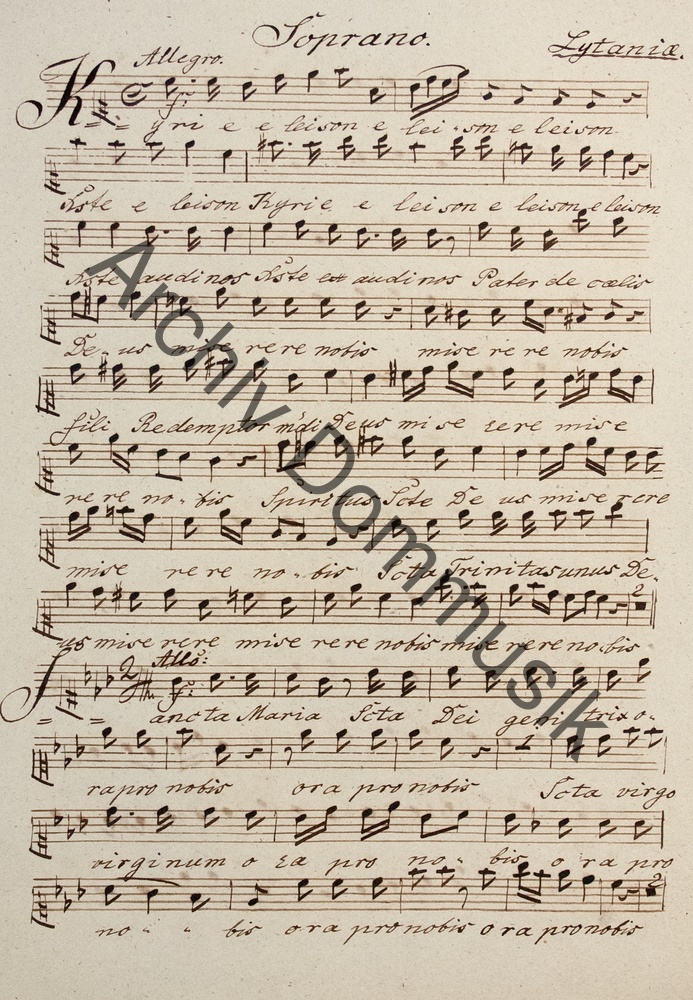 Soprano.
Lytaniæ.
Allegro.
Kyri e e leison e lei-son e leison
Xste e leison Kyrie e leison e leison e leison
Xste audi nos Xste audi nos Pater de cœlis
De-us mise rere nobis mise re re nobis
fili Redemptor mdi Deus mi se rere mise
re re no-bis Spiritus Scte De us mise rere
mise re re no-bis Scta Trinitas unus De-
us mise rere mise rere nobis mise rere nobis
2
2 Allo:
Sancta Maria Scta Dei geni trix o-
ra pro nobis ora pro nobis Scta virgo
virginum o ra pro no-bis o ra pro
no - - bis ora pro nobis ora pro nobis
2
Archiv Dommusik